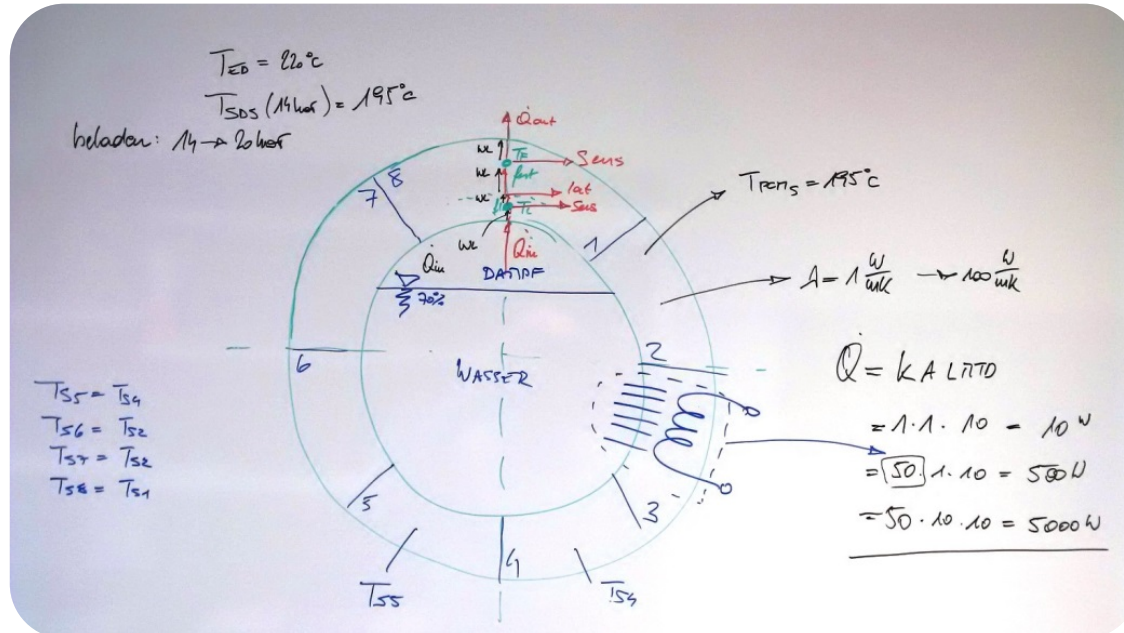 T_ED = 220°C
T_SDS (14 bar) = 195°C
beladen: 14 → 20 bar
Q̇out
wl
T_F
Sens
fest
wl
lat
wl
fl
T_L
Sens
wl
Q̇in
Q̇in
DAMPF
70%
WASSER
8
7
1
6
2
5
3
4
T_S5
T_S4
T_PCM,S = 195°C
λ = 1 W/mK → 100 W/mK
Q̇ = k A LMTD
= 1 · 1 · 10 = 10 W
= 50 · 1 · 10 = 500 W
= 50 · 10 · 10 = 5000 W
T_S5 = T_S4
T_S6 = T_S2
T_S7 = T_S2
T_S8 = T_S1